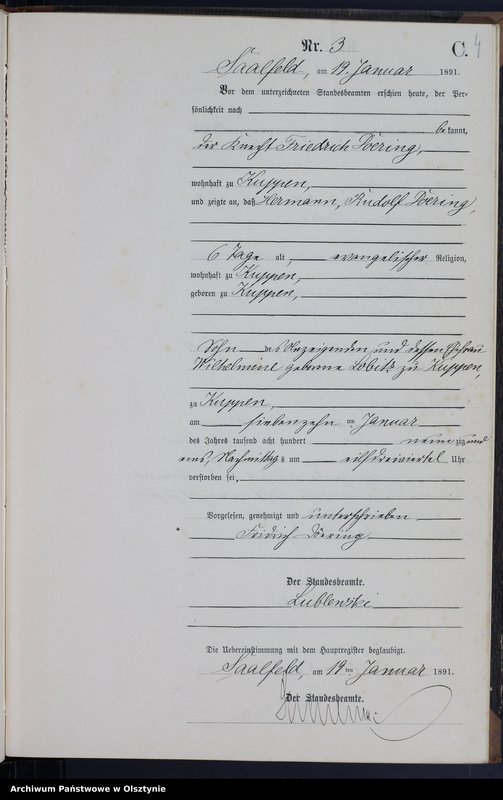 Nr. 3
C. 4
Saalfeld, am 19. Januar 1891.
Vor dem unterzeichneten Standesbeamten erschien heute, der Per-
sönlichkeit nach
bekannt,
der Knecht Friedrich Doering,
wohnhaft zu Kuppen,
und zeigte an, daß Hermann, Rudolf Doering,
6 Tage alt, evangelischer Religion,
wohnhaft zu Kuppen,
geboren zu Kuppen,
Sohn des Anzeigenden und dessen Ehefrau
Wilhelmine geborne Lobitz zu Kuppen,
zu Kuppen,
am siebenzehn ten Januar
des Jahres tausend acht hundert neunzig und
eins, Nachmittags um eilf dreiviertel Uhr
verstorben sei,
Vorgelesen, genehmigt und unterschrieben
Fridrich Doering.
Der Standesbeamte.
Lublewski
Die Uebereinstimmung mit dem Hauptregister beglaubigt.
Saalfeld, am 19ten Januar 1891.
Der Standesbeamte.
Archiwum Państwowe w Olsztynie